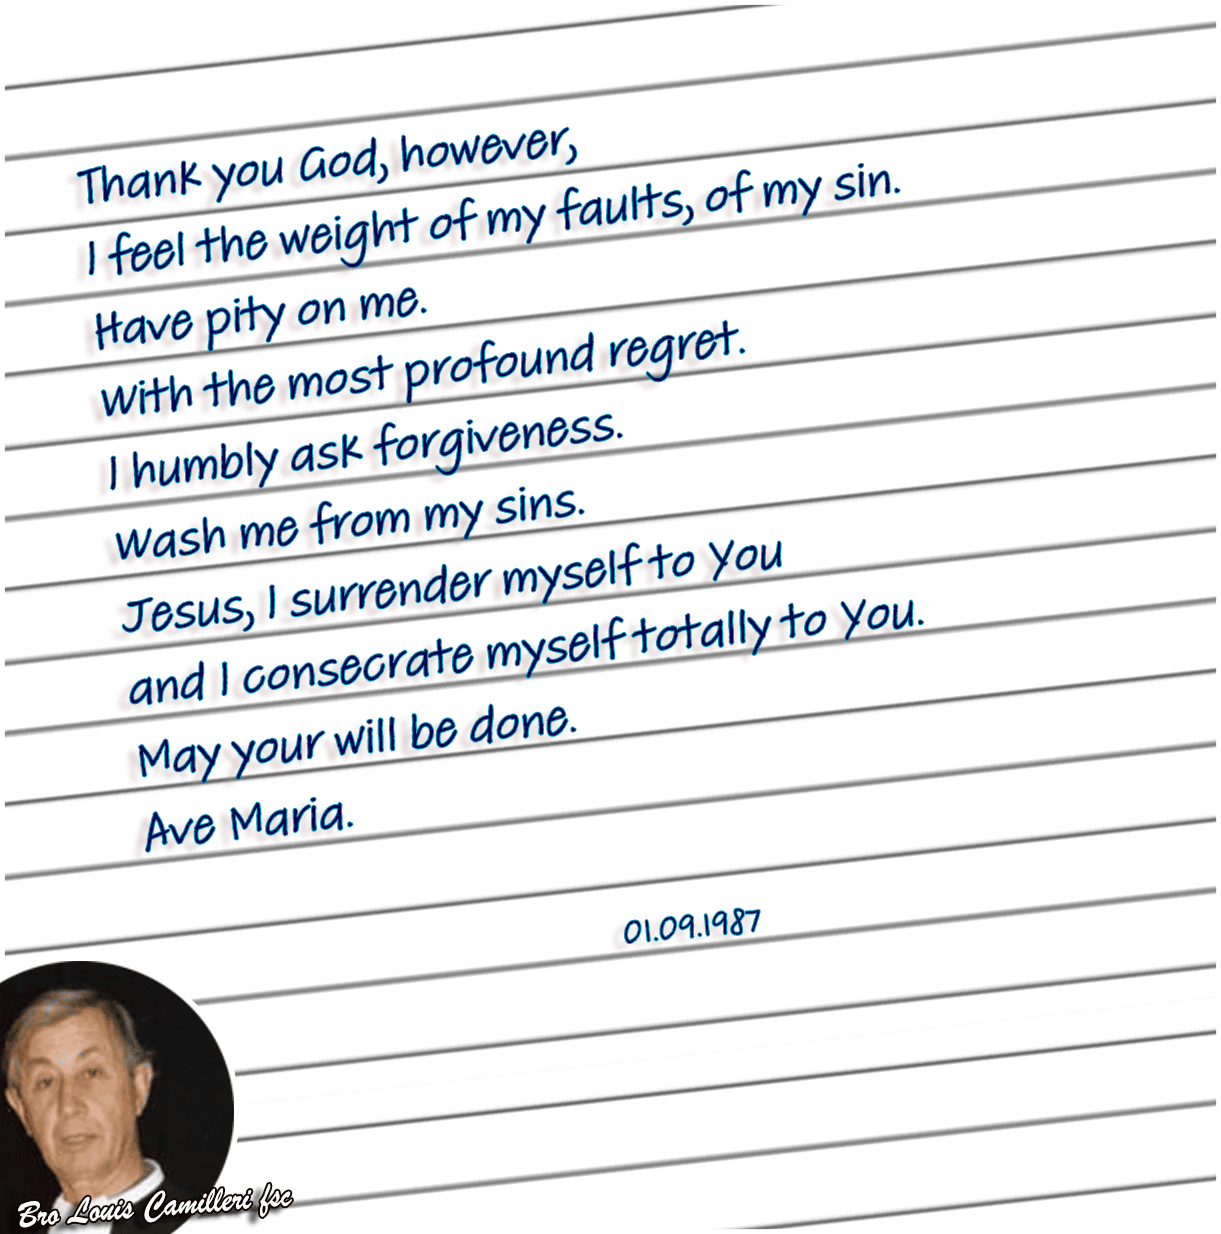 Thank you God, however,
I feel the weight of my faults, of my sin.
Have pity on me.
With the most profound regret.
I humbly ask forgiveness.
Wash me from my sins.
Jesus, I surrender myself to You
and I consecrate myself totally to You.
May your will be done.
Ave Maria.
01.09.1987
Bro Louis Camilleri fsc